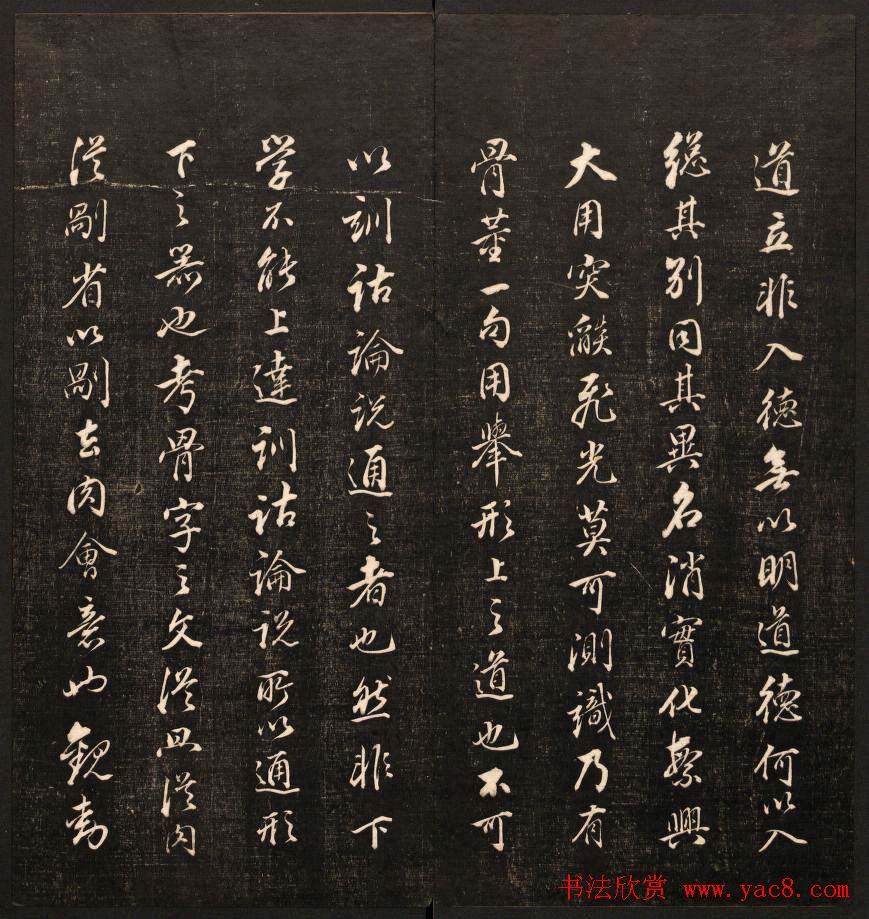 道立非入德無以明道德何以入
總其別同其異名消實化繁興
大用突燄飛光莫可測識乃有
骨董一句用舉形上之道也不可
以訓詁論說通之者也然非下
学不能上達訓詁論說所以通形
下之器也考骨字之文從冎從肉
從剮省以剮去肉會意也觀動
书法欣赏 www.yac8.com